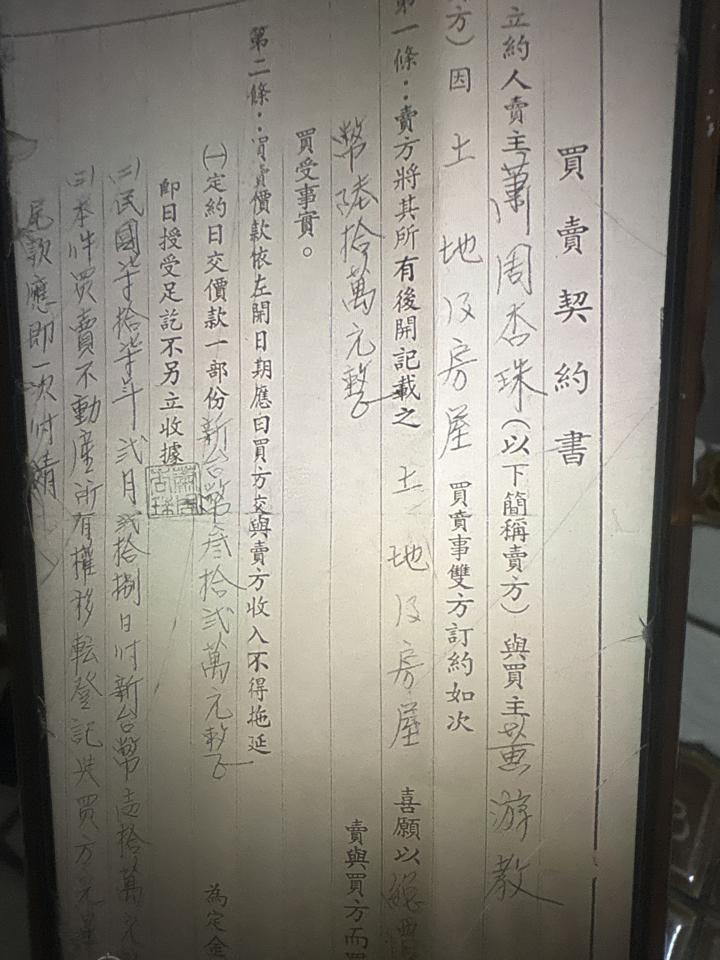 買賣契約書
立約人賣主蕭周杏珠(以下簡稱賣方)與買主黃游教
方)因 土地及房屋 買賣事雙方訂約如次
第一條:賣方將其所有後開記載之 土地及房屋 喜願以總
幣陸拾萬元整 賣與買方而買
買受事實。
第二條:買賣價款依左開日期應由買方交與賣方收入不得拖延
㈠定約日交價款一部份新台幣叁拾貳萬元整 為定金
即日授受足訖不另立收據
㈡民國柒拾柒年貳月貳拾捌日付新台幣壹拾萬元
㈢本件買賣不動產所有權移転登記與買方完畢
尾款應即一次付清